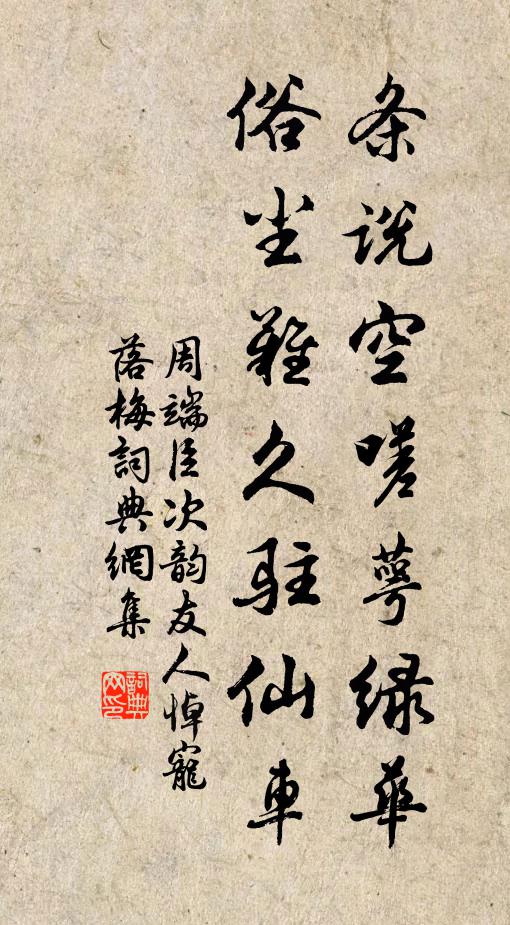 条说空嗟萼绿华
俗尘难久驻仙车
周端臣次韵友人悼宠
落梅詞典網集
詞典網印